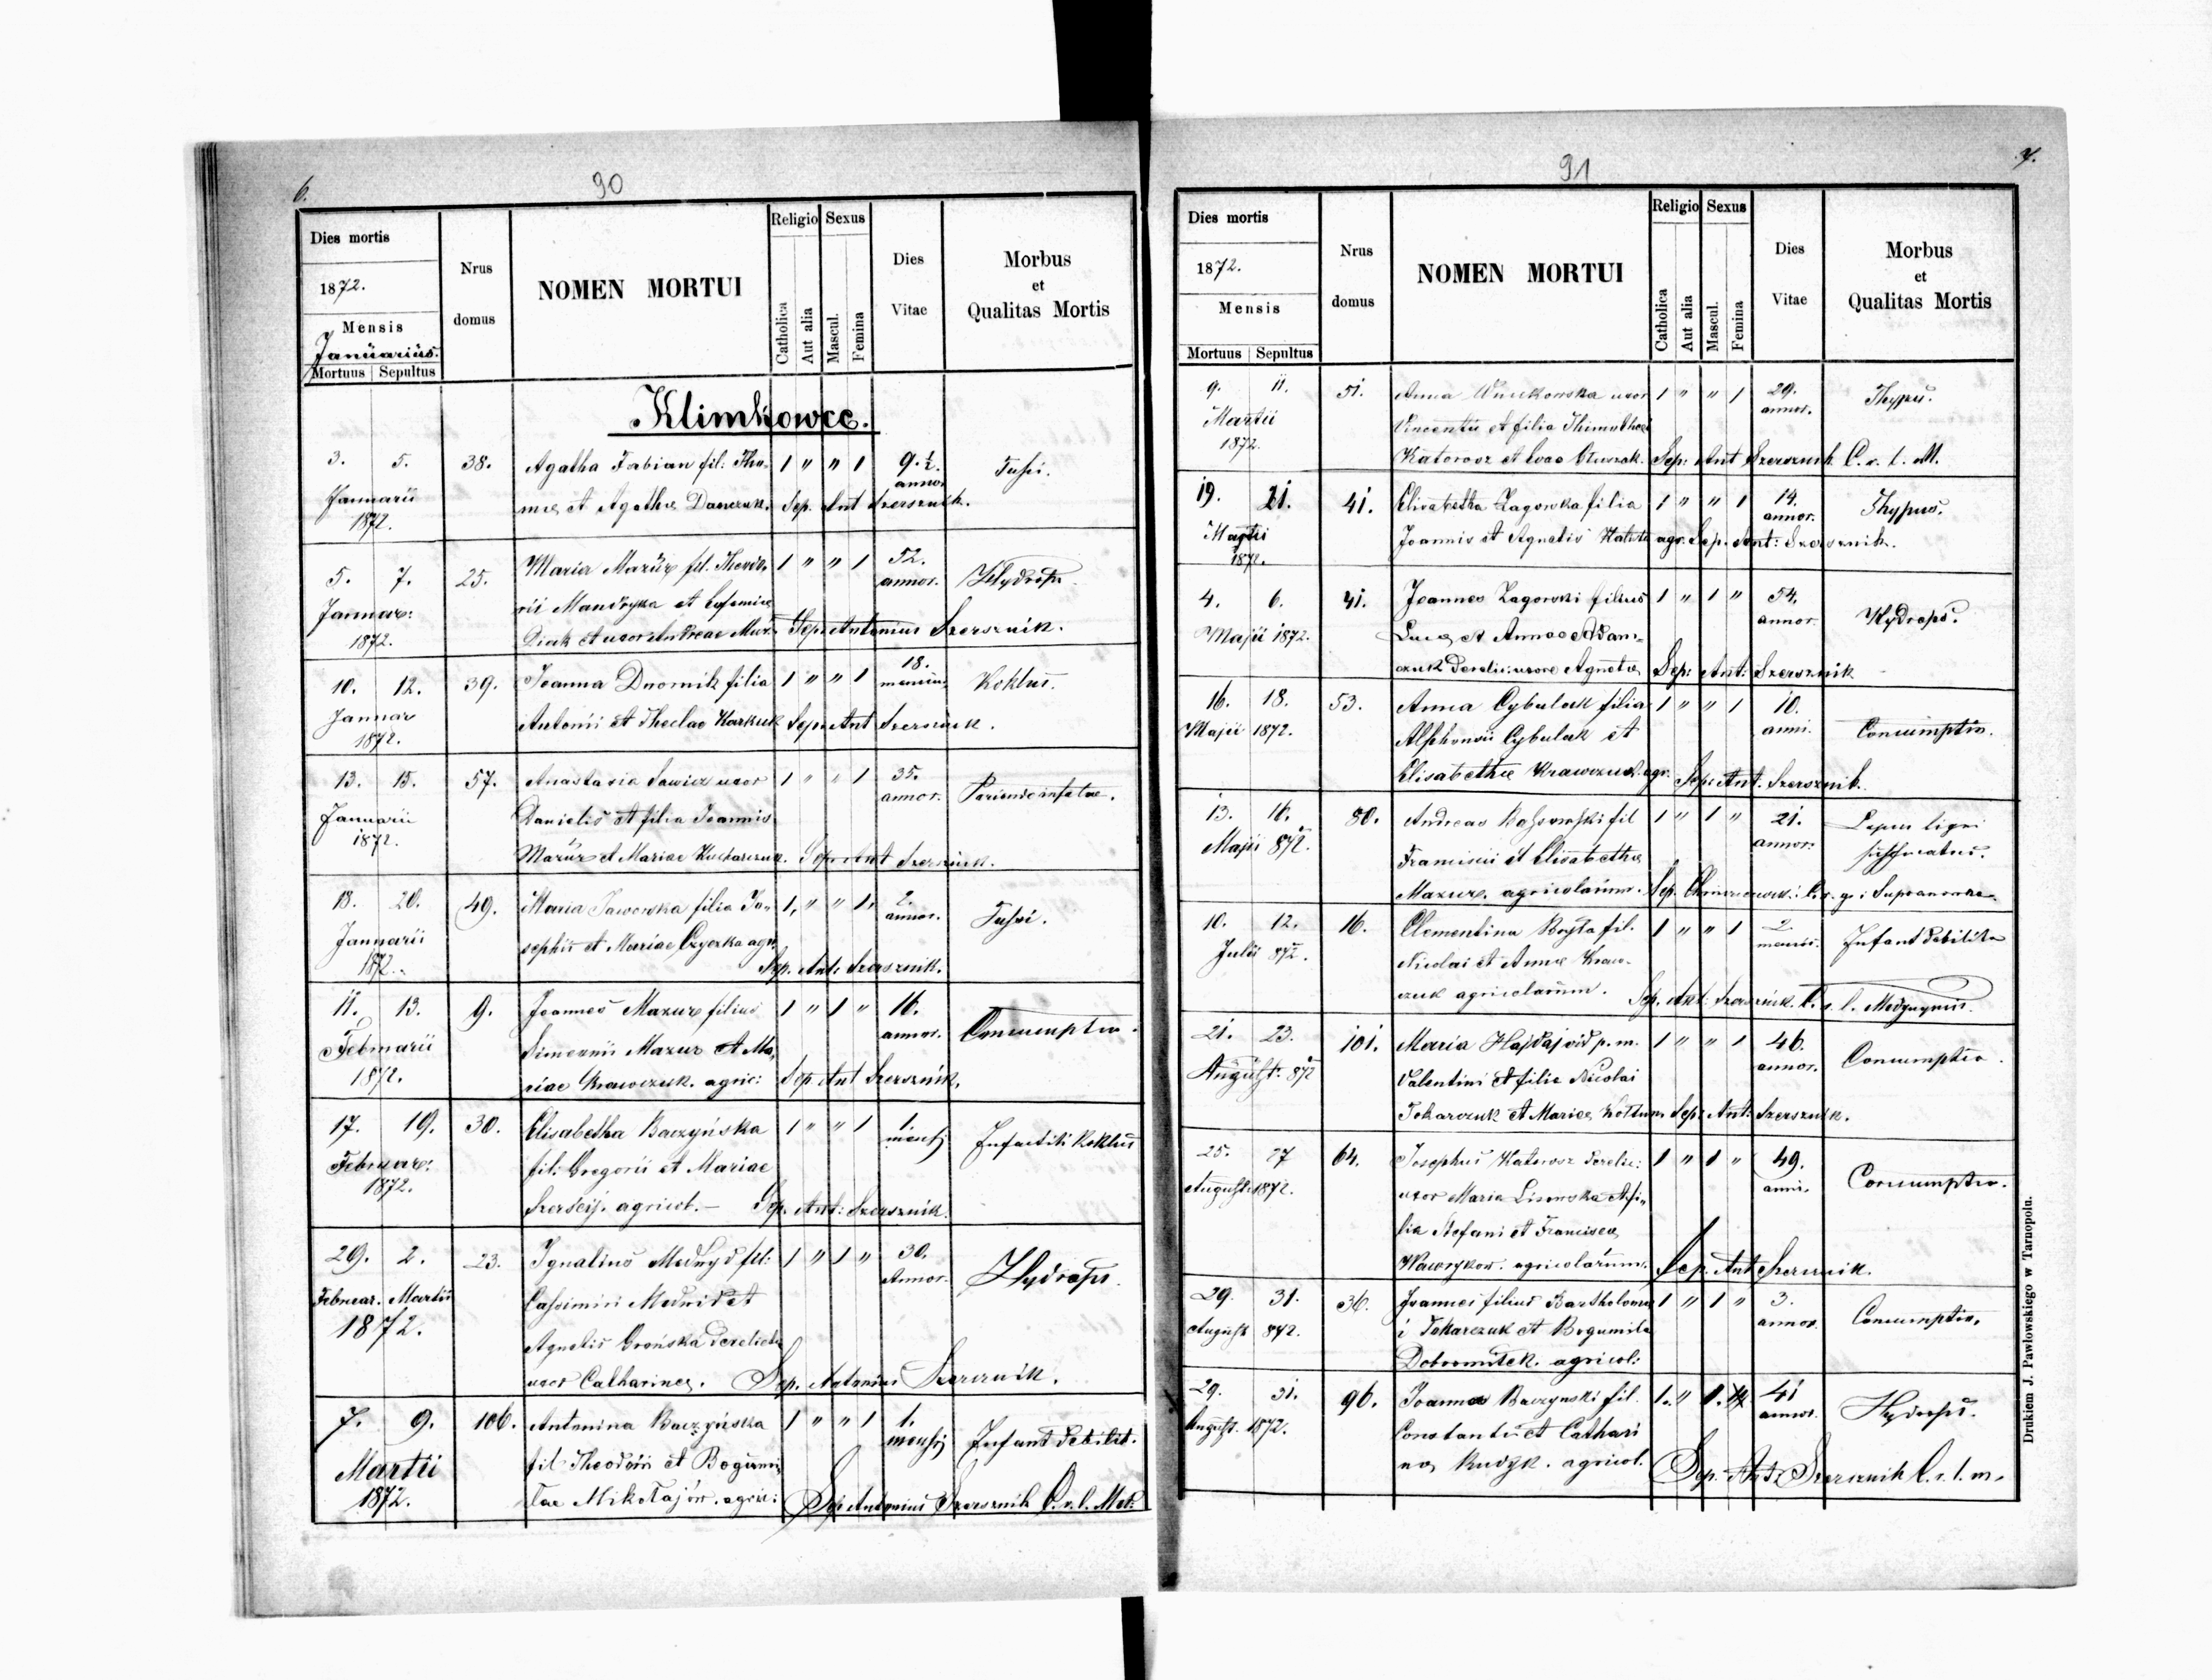 6.
90
Dies mortis
1872.
Mensis
Januarius.
Mortuus Sepultus
Nrus
domus
NOMEN MORTUI
Religio Sexus
Catholica
Aut alia
Mascul.
Femina
Dies
Vitae
Morbus
et
Qualitas Mortis
Klimkowce.
3. 5. 38. Agatha Fabian fil: Tho- 1 " " 1 9.½ annor. Tussi.
Januarii
1872.
mae et Agathae Danczuk. Sep. Ant Szersznik.
5. 7. 25. Maria Mazur fil. Theodo- 1 " " 1 52. annor. Hydrops
Januar:
1872.
rii Mandryka et Eufemiae
Diak et uxor Andreae Maz. Sep. Antonius Szersznik.
10. 12. 39. Joanna Dwornik filia 1 " " 1 18. mensium Koklus.
Januar
1872.
Antonii et Theclae Karkuk Sep. Ant Szersznik.
13. 15. 57. Anastasia Sawicz uxor 1 " " 1 35. annor.
Januarii
1872.
Danielis et filia Joannis
Mazur et Mariae Kucharczuk. Sep. Ant Szersznik.
18. 20. 49. Maria Jaworska filia Jo- 1, " " 1. 2. annor. Tussi.
Januarii
1872.
sephi et Mariae agr.
Sep. Ant. Szersznik.
11. 13. 9. Joannes Mazur filius 1 " 1 " 16. annor. Consumptio.
Februarii
1872.
Simeonis Mazur et Ma-
riae Krawczuk. agric: Sep Ant Szersznik.
17. 19. 30. Elisabetha Baczyńska 1 " " 1 1. mensis Koklus
Februar:
1872.
fil: Gregorii et Mariae
agricol. — Sep. Ant: Szersznik.
29. 2. 23. Ignatius Medwyd fil: 1 " 1 " 30. Annor. Hydrops.
Februar. Martii
1872.
Cassimiri Medwid et
Agnetis Grońska derelicta
uxor Catharina. Sep. Antonius Szersznik.
7. 9. 106. Antonina Baczyńska 1 " " 1 1. mensis Infant debilit.
Martii
1872.
fil Theodori et Bogumi-
łae Mikołajów. agric: Sep Antonius Szersznik C. r. l. Med.
7.
91
Dies mortis
1872.
Mensis
Mortuus Sepultus
Nrus
domus
NOMEN MORTUI
Religio Sexus
Catholica
Aut alia
Mascul.
Femina
Dies
Vitae
Morbus
et
Qualitas Mortis
9. 11. 51. Anna uxor 1 " " 1 29. annor. Thypus.
Martii
1872.
Vincentii et filia Thimothei
Katorosz et Evae Sep: Ant Szersznik C. r. l. M.
19. 21. 41. Elisabetha Zagorska filia 1 " " 1 14. annor. Thypus.
Martii
1872.
Joannis et Agnetis agr. Sep. Ant: Szersznik.
4. 6. 41. Joannes Zagorski filius 1 " 1 " 54. annor. Hydrops.
Maji 1872.
Lucae et Annae Adam-
czuk derelic: uxore Agneta Sep: Ant: Szersznik
16. 18. 53. Anna Cybulak filia 1 " " 1 10. anni. Consumptio.
Maji 1872.
Alphonsii Cybulak et
Elisabethae Krawczuk agr. Sep: Ant. Szersznik.
13. 16. 80. Andreas fil 1 " 1 " 21. annor.
Maji 872.
Francisci et Elisabethae
Mazur. agricolarum. Sep.
10. 12. 16. Clementina fil. 1 " " 1 2. mensis. Infant debilita
Julii 872.
Nicolai et Annae Kraw-
czuk agricolarum. Sep. Ant: Szersznik. C. r. l.
21. 23. 101. Maria Hajdaj vid p. m. 1 " " 1 46. annor. Consumptio.
August. 872
Valentini et filia Nicolai
Tokarczuk et Mariae Sep: Ant: Szersznik.
25. 27 64. Josephus Katorosz derelic: 1 " 1 " 49. anni. Consumptio.
August 1872.
uxor Maria Lisowska et fi-
lia Stefani et Francisca
agricolarum. Sep. Ant Szersznik.
29. 31. 36. Joannes filius Bartholomae 1 " 1 " 3. annor. Consumptio.
August 872.
i Tokarczuk et Bogumila
Dobromilek. agricol:
29. 31. 96. Joannes Baczynski fil. 1. " 1. 41 annor. Hydrops.
August. 1872.
Constantii et Cathari
nae Rudyk. agricol. Sep. Ant. Szersznik C. r. l. m.
Drukiem J. Pawłowskiego w Tarnopolu.